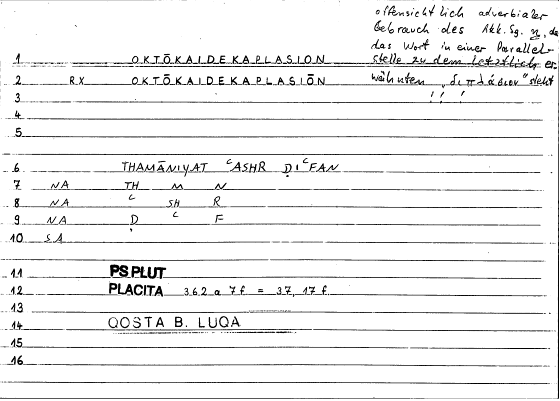 offensichtlich adverbialer
Gebrauch des Akk. Sg. n, da
das Wort in einer Parallel-
stelle zu dem letztlich er-
wähnten „διπλάσιον" steht
! ! !
1 OKTŌKAIDEKAPLASION
2 RX OKTŌKAIDEKAPLASIŌN
3
4
5
6 THAMĀNIYAT ʿASHR ḌIʿFAN
7 NA TH M N
8 NA ʿ SH R
9 NA Ḍ ʿ F
10 SA
11 PS PLUT
12 PLACITA 362 a 7 f = 37, 17 f.
13
14 QOSTA B. LUQA
15
16